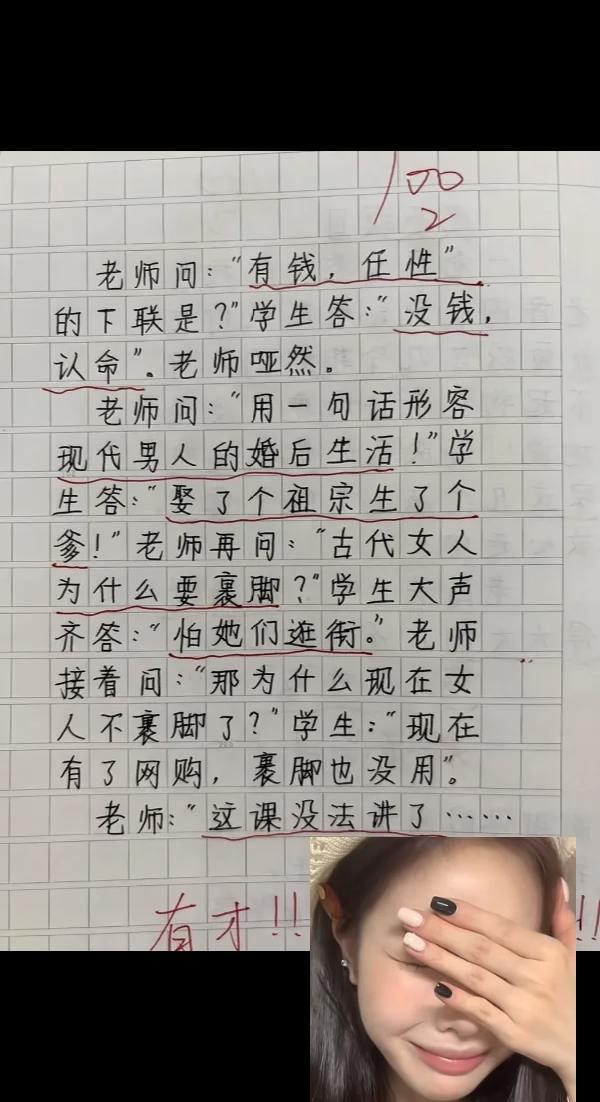 100
2
老师问：“有钱，任性”
的下联是？”学生答：“没钱，
认命”。老师哑然。
老师问：“用一句话形容
现代男人的婚后生活！”学
生答：“娶了个祖宗生了个
爹！”老师再问：“古代女人
为什么要裹脚？”学生大声
齐答：“怕她们逛街。”老师
接着问：“那为什么现在女
人不裹脚了？”学生：“现在
有了网购，裹脚也没用”。
老师：“这课没法讲了……
有才!! !!